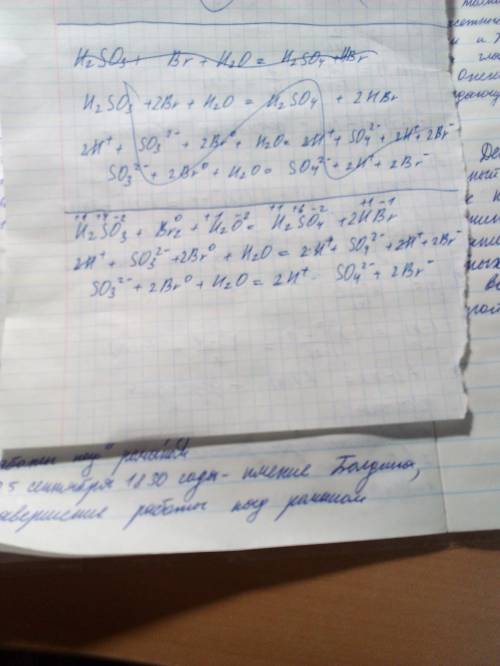 H₂SO₃ + Br + H₂O = H₂SO₄ + HBr
H₂SO₃ + 2Br + H₂O = H₂SO₄ + 2HBr
2H⁺ + SO₃²⁻ + 2Br⁰ + H₂O = 2H⁺ + SO₄²⁻ + 2H⁺ + 2Br⁻
SO₃²⁻ + 2Br⁰ + H₂O = SO₄²⁻ + 2H⁺ + 2Br⁻
+1 +4 -2 0 +1 -2 +1 +6 -2 +1 -1
H₂SO₃ + Br₂ + H₂O = H₂SO₄ + 2HBr
2H⁺ + SO₃²⁻ + 2Br⁰ + H₂O = 2H⁺ + SO₄²⁻ + 2H⁺ + 2Br⁻
SO₃²⁻ + 2Br⁰ + H₂O = 2H⁺ SO₄²⁻ + 2Br⁻
работы над романом
5 сентября 1830 года - имение Болдина,
завершение работы над романом